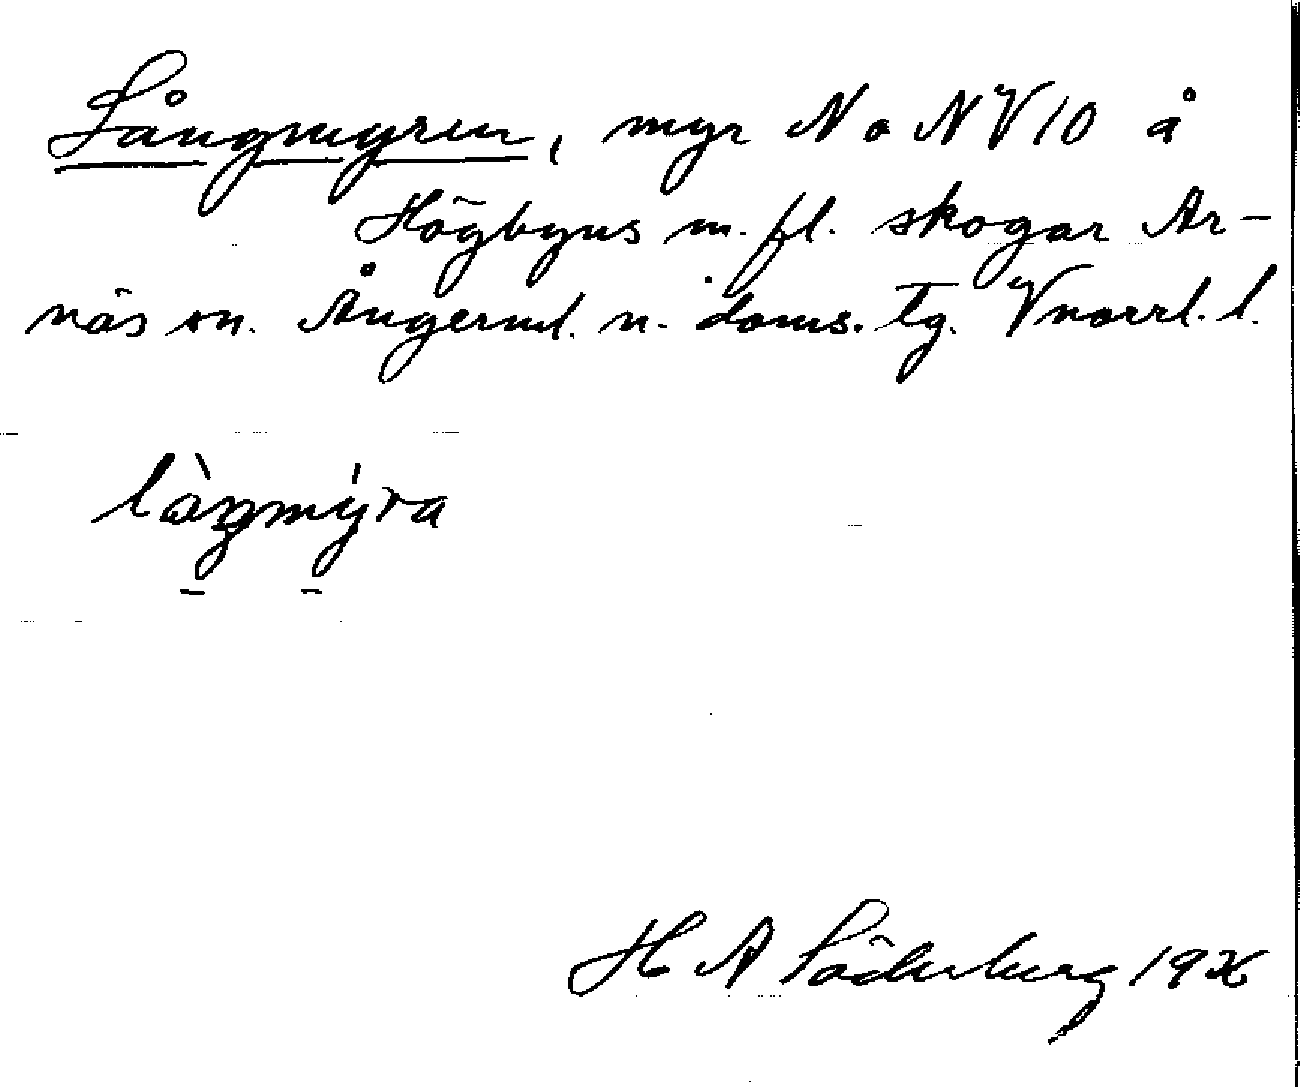 Långmyren, myr N o NV 10 å
Högbyns m. fl. skogar Ar-
näs sn. Ångerml. n. doms. tg. Vnorrl. l.
làŋmýra
H A Söderberg 19